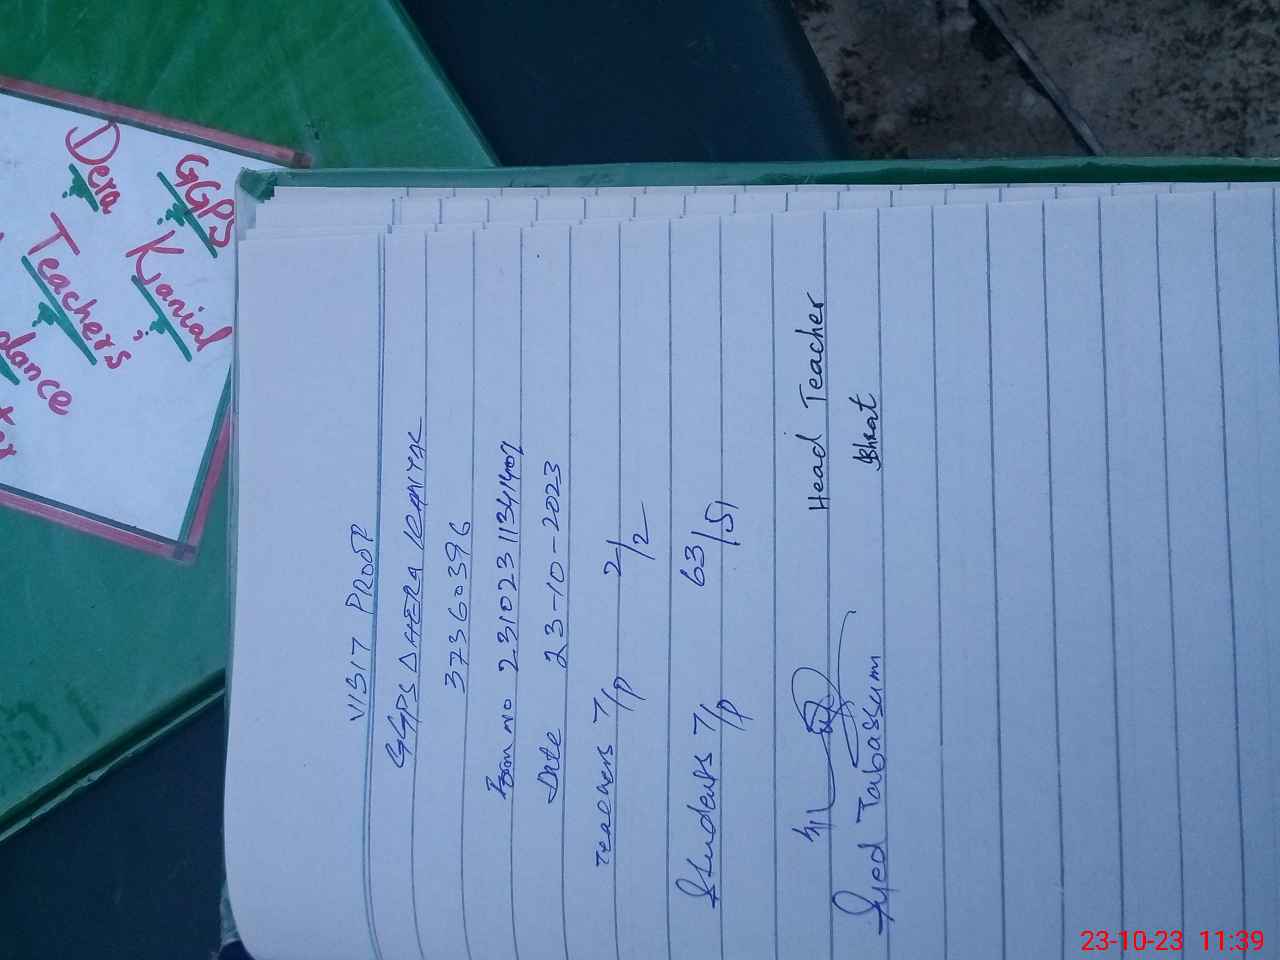 VISIT PROOF
GGPS DHERA KANYAL
37360396
Form no 231023113414
Date 23-10-2023
Teachers T/P 2/2
Students T/P 63/51
Head Teacher
Syed Tabassum
GGPS
Dera Kanial
Teachers
23-10-23 11:39